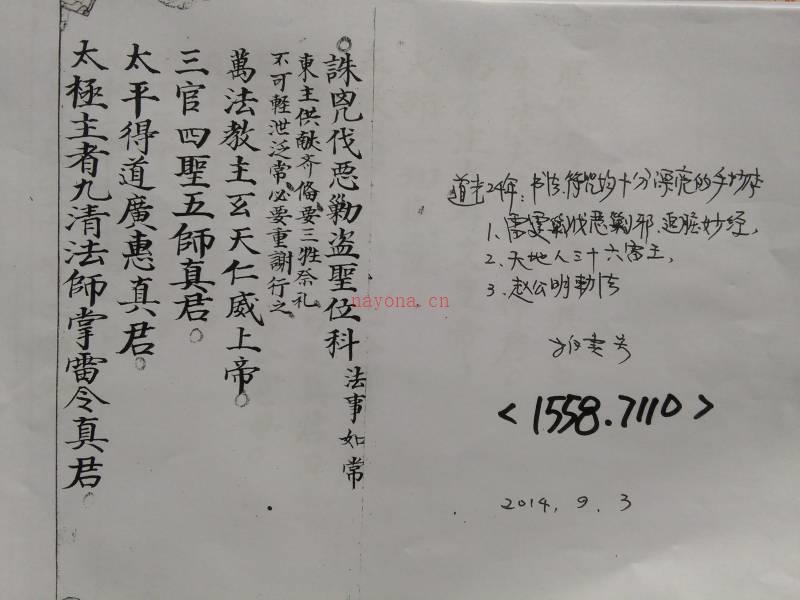 誅兇伐惡勦盗聖位科 法事如常
東主供献齐俻要三牲祭礼
不可輕泄泛常必要重謝行之
萬法教主玄天仁威上帝
三官四聖五師真君
太平得道廣惠真君
太極主者九清法師掌雷令真君
道光24年:书法、符咒均十分深厚的手抄本
1、雷霆 伐恶 邪、追 妙经,
2、天地人三十六雷主,
3、赵公明勅法
<1558.7110>
2014.9.3
nayona.cn